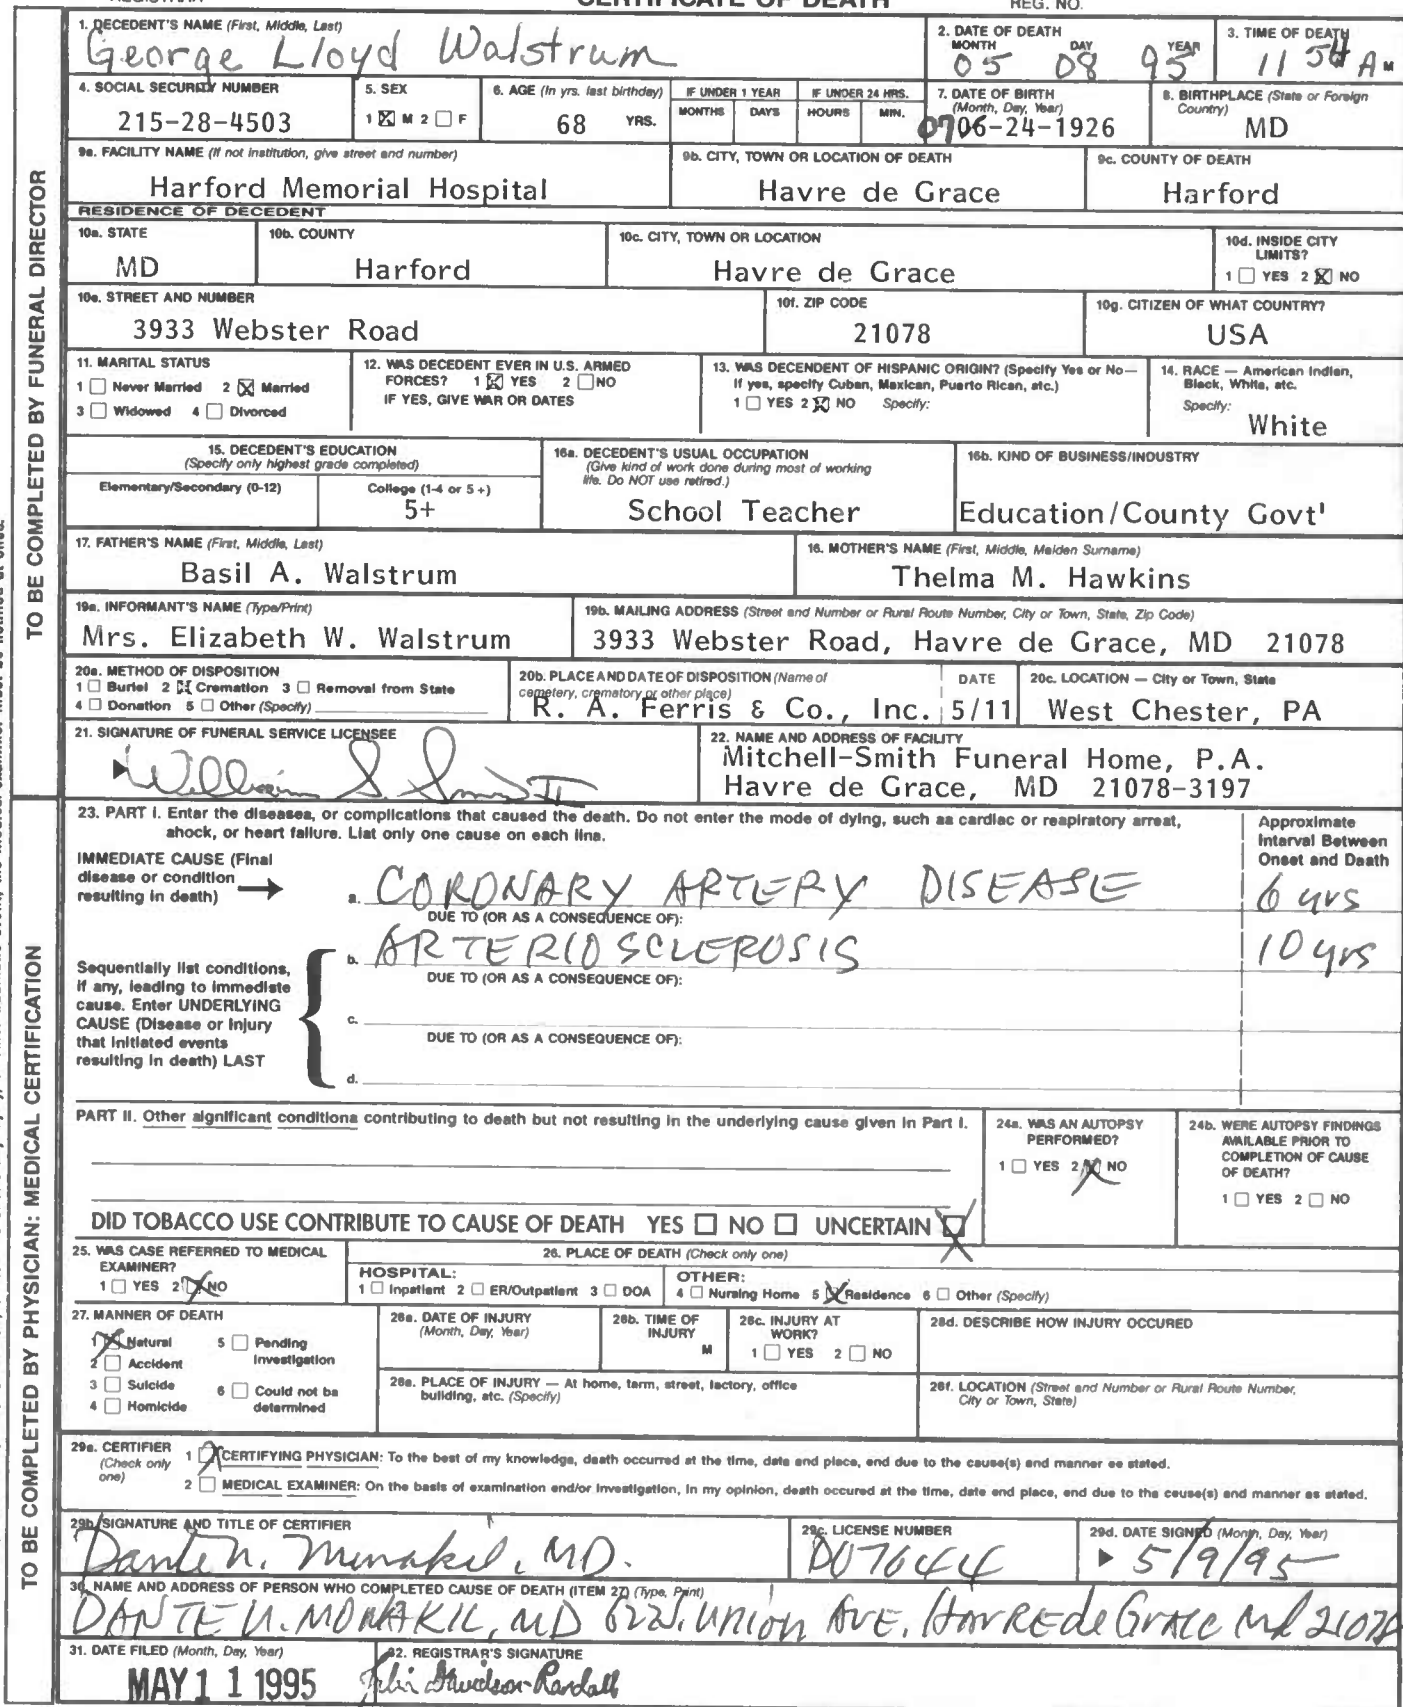 CERTIFICATE OF DEATH
REG. NO.
1. DECEDENT'S NAME (First, Middle, Last)
George Lloyd Walstrum
2. DATE OF DEATH
MONTH DAY YEAR
05 08 95
3. TIME OF DEATH
11 54 A M
4. SOCIAL SECURITY NUMBER
215-28-4503
5. SEX
1 ☒ M 2 ☐ F
6. AGE (In yrs. last birthday)
68 YRS.
IF UNDER 1 YEAR
MONTHS DAYS
IF UNDER 24 HRS.
HOURS MIN.
7. DATE OF BIRTH
(Month, Day, Year)
0706-24-1926
8. BIRTHPLACE (State or Foreign
Country)
MD
9a. FACILITY NAME (If not institution, give street and number)
Harford Memorial Hospital
9b. CITY, TOWN OR LOCATION OF DEATH
Havre de Grace
9c. COUNTY OF DEATH
Harford
RESIDENCE OF DECEDENT
10a. STATE
MD
10b. COUNTY
Harford
10c. CITY, TOWN OR LOCATION
Havre de Grace
10d. INSIDE CITY
LIMITS?
1 ☐ YES 2 ☒ NO
10e. STREET AND NUMBER
3933 Webster Road
10f. ZIP CODE
21078
10g. CITIZEN OF WHAT COUNTRY?
USA
11. MARITAL STATUS
1 ☐ Never Married 2 ☒ Married
3 ☐ Widowed 4 ☐ Divorced
12. WAS DECEDENT EVER IN U.S. ARMED
FORCES? 1 ☒ YES 2 ☐ NO
IF YES, GIVE WAR OR DATES
13. WAS DECENDENT OF HISPANIC ORIGIN? (Specify Yes or No—
If yes, specify Cuban, Mexican, Puerto Rican, etc.)
1 ☐ YES 2 ☒ NO Specify:
14. RACE — American Indian,
Black, White, etc.
Specify:
White
15. DECEDENT'S EDUCATION
(Specify only highest grade completed)
Elementary/Secondary (0-12)
College (1-4 or 5+)
5+
16a. DECEDENT'S USUAL OCCUPATION
(Give kind of work done during most of working
life. Do NOT use retired.)
School Teacher
16b. KIND OF BUSINESS/INDUSTRY
Education/County Govt'
17. FATHER'S NAME (First, Middle, Last)
Basil A. Walstrum
18. MOTHER'S NAME (First, Middle, Maiden Surname)
Thelma M. Hawkins
19a. INFORMANT'S NAME (Type/Print)
Mrs. Elizabeth W. Walstrum
19b. MAILING ADDRESS (Street and Number or Rural Route Number, City or Town, State, Zip Code)
3933 Webster Road, Havre de Grace, MD 21078
20a. METHOD OF DISPOSITION
1 ☐ Burial 2 ☒ Cremation 3 ☐ Removal from State
4 ☐ Donation 5 ☐ Other (Specify)
20b. PLACE AND DATE OF DISPOSITION (Name of
cemetery, crematory or other place)
R. A. Ferris & Co., Inc.
DATE
5/11
20c. LOCATION — City or Town, State
West Chester, PA
21. SIGNATURE OF FUNERAL SERVICE LICENSEE
William S. Smith II
22. NAME AND ADDRESS OF FACILITY
Mitchell-Smith Funeral Home, P.A.
Havre de Grace, MD 21078-3197
TO BE COMPLETED BY FUNERAL DIRECTOR
23. PART I. Enter the diseases, or complications that caused the death. Do not enter the mode of dying, such as cardiac or respiratory arrest,
shock, or heart failure. List only one cause on each line.
Approximate
Interval Between
Onset and Death
IMMEDIATE CAUSE (Final
disease or condition
resulting in death) →
a. CORONARY ARTERY DISEASE 6 yrs
DUE TO (OR AS A CONSEQUENCE OF):
b. ARTERIOSCLEROSIS 10 yrs
DUE TO (OR AS A CONSEQUENCE OF):
Sequentially list conditions,
if any, leading to immediate
cause. Enter UNDERLYING
CAUSE (Disease or Injury
that initiated events
resulting in death) LAST
c.
DUE TO (OR AS A CONSEQUENCE OF):
d.
PART II. Other significant conditions contributing to death but not resulting in the underlying cause given in Part I.
24a. WAS AN AUTOPSY
PERFORMED?
1 ☐ YES 2 ☒ NO
24b. WERE AUTOPSY FINDINGS
AVAILABLE PRIOR TO
COMPLETION OF CAUSE
OF DEATH?
1 ☐ YES 2 ☐ NO
DID TOBACCO USE CONTRIBUTE TO CAUSE OF DEATH YES ☐ NO ☐ UNCERTAIN ☒
25. WAS CASE REFERRED TO MEDICAL
EXAMINER?
1 ☐ YES 2 ☒ NO
26. PLACE OF DEATH (Check only one)
HOSPITAL:
1 ☐ Inpatient 2 ☐ ER/Outpatient 3 ☐ DOA
OTHER:
4 ☐ Nursing Home 5 ☒ Residence 6 ☐ Other (Specify)
27. MANNER OF DEATH
1 ☒ Natural 5 ☐ Pending
Investigation
2 ☐ Accident
3 ☐ Suicide 6 ☐ Could not be
determined
4 ☐ Homicide
28a. DATE OF INJURY
(Month, Day, Year)
28b. TIME OF
INJURY
M
28c. INJURY AT
WORK?
1 ☐ YES 2 ☐ NO
28d. DESCRIBE HOW INJURY OCCURED
28e. PLACE OF INJURY — At home, farm, street, factory, office
building, etc. (Specify)
28f. LOCATION (Street and Number or Rural Route Number,
City or Town, State)
29a. CERTIFIER
(Check only
one)
1 ☒ CERTIFYING PHYSICIAN: To the best of my knowledge, death occurred at the time, date and place, and due to the cause(s) and manner as stated.
2 ☐ MEDICAL EXAMINER: On the basis of examination and/or investigation, in my opinion, death occured at the time, date and place, and due to the cause(s) and manner as stated.
29b. SIGNATURE AND TITLE OF CERTIFIER
Dante N. Monakil, MD.
29c. LICENSE NUMBER
D07644
29d. DATE SIGNED (Month, Day, Year)
▶ 5/9/95
30. NAME AND ADDRESS OF PERSON WHO COMPLETED CAUSE OF DEATH (ITEM 27) (Type, Print)
DANTE N. MONAKIL, MD UNION AVE. HAVRE de GRACE Md 21078
31. DATE FILED (Month, Day, Year)
MAY 11 1995
32. REGISTRAR'S SIGNATURE
Davidson-Randall
TO BE COMPLETED BY PHYSICIAN: MEDICAL CERTIFICATION